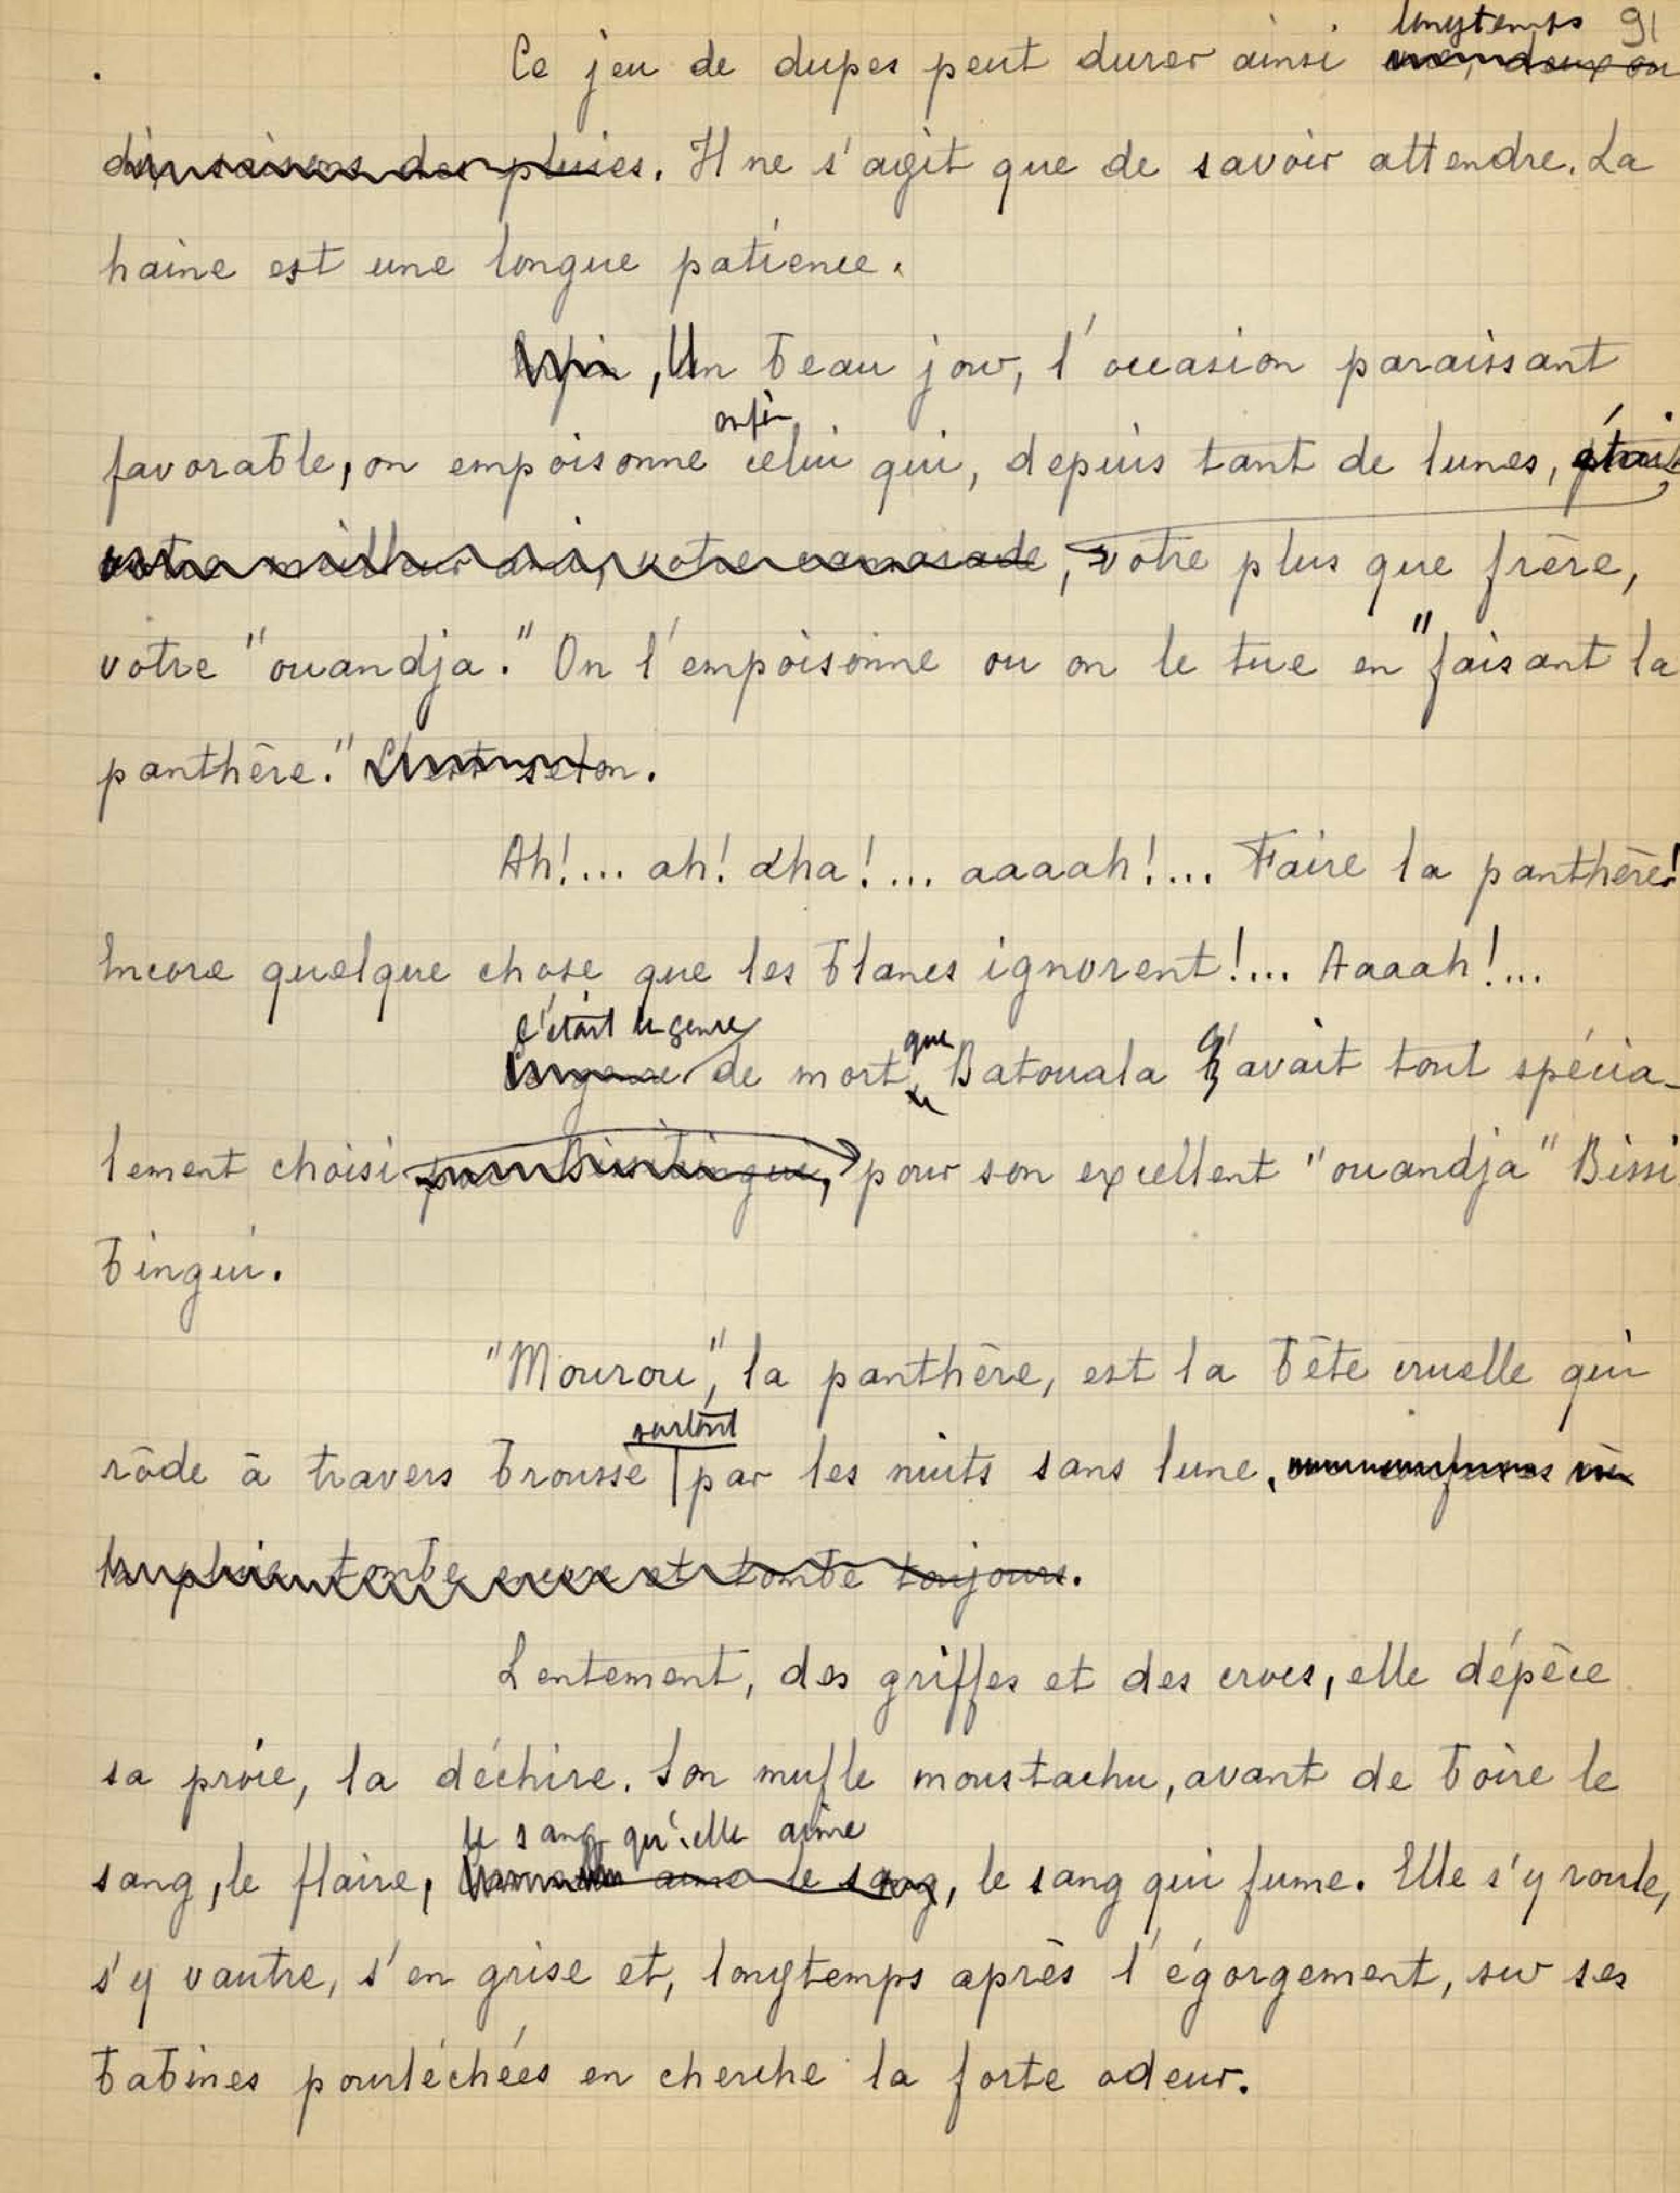 91
longtemps
Ce jeu de dupes peut durer ainsi une, deux ou
dix saisons des pluies. Il ne s'agit que de savoir attendre. La
haine est une longue patience.
Enfin, Un beau jour, l'occasion paraissant
enfin
favorable, on empoisonne celui qui, depuis tant de lunes, était
votre meilleur ami, votre camarade, votre plus que frère,
votre "ouandja." On l'empoisonne ou on le tue en "faisant la
panthère." C'est selon.
Ah!... ah! aha!... aaaah!... Faire la panthère!
Encore quelque chose que les blancs ignorent!... Aaaah!...
C'était le genre que
Ce genre de mort, Batouala l'avait tout spécia-
lement choisi pour Bissibingui, pour son excellent "ouandja" Bissi
bingui.
"Mourou", la panthère, est la bête cruelle qui
surtout
rôde à travers brousse par les nuits sans lune, où
la pluie tombe encore et tombe toujours.
Lentement, des griffes et des crocs, elle dépèce
sa proie, la déchire. Son mufle moustachu, avant de boire le
le sang qu'elle aime
sang, le flaire, aime le sang, le sang qui fume. Elle s'y roule,
s'y vautre, s'en grise et, longtemps après l'égorgement, sur ses
babines pourléchées en cherche la forte odeur.